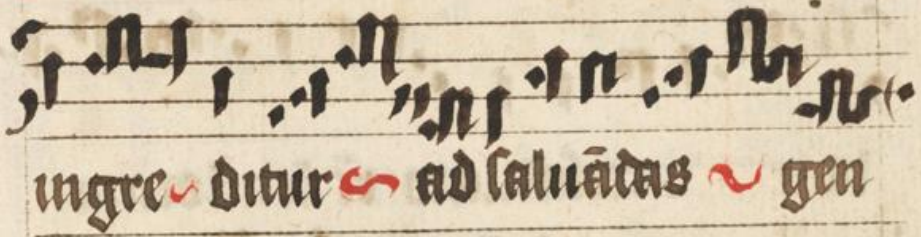 ingre ditur ad saluādas gen